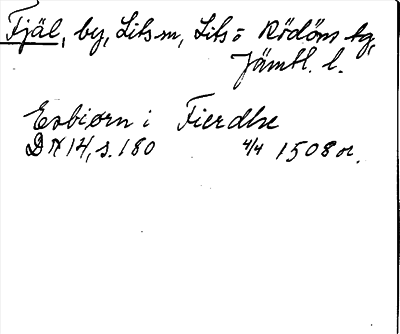 Fjäl, by, Lits sn, Lits o Rödöns tg,
Jämtl. l.
Esbiørn i Fierdhe
DN 14, s. 180 4/4 1508 or.